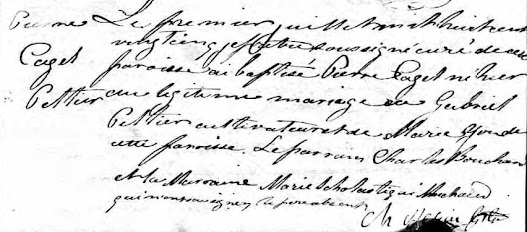 Pierre Le premier juillet mil huit cent
vingt cinq je prêtre soussigné curé de cette
Cagel paroisse ai baptisé Pierre Cagel né hier
Peltier du légitime mariage de Gabriel
Peltier cultivateur et de Marie
cette paroisse. Le parrain Charles Bouchard
et la Marraine Marie Scholastique Michaud
qui n'ont su signer le père absent